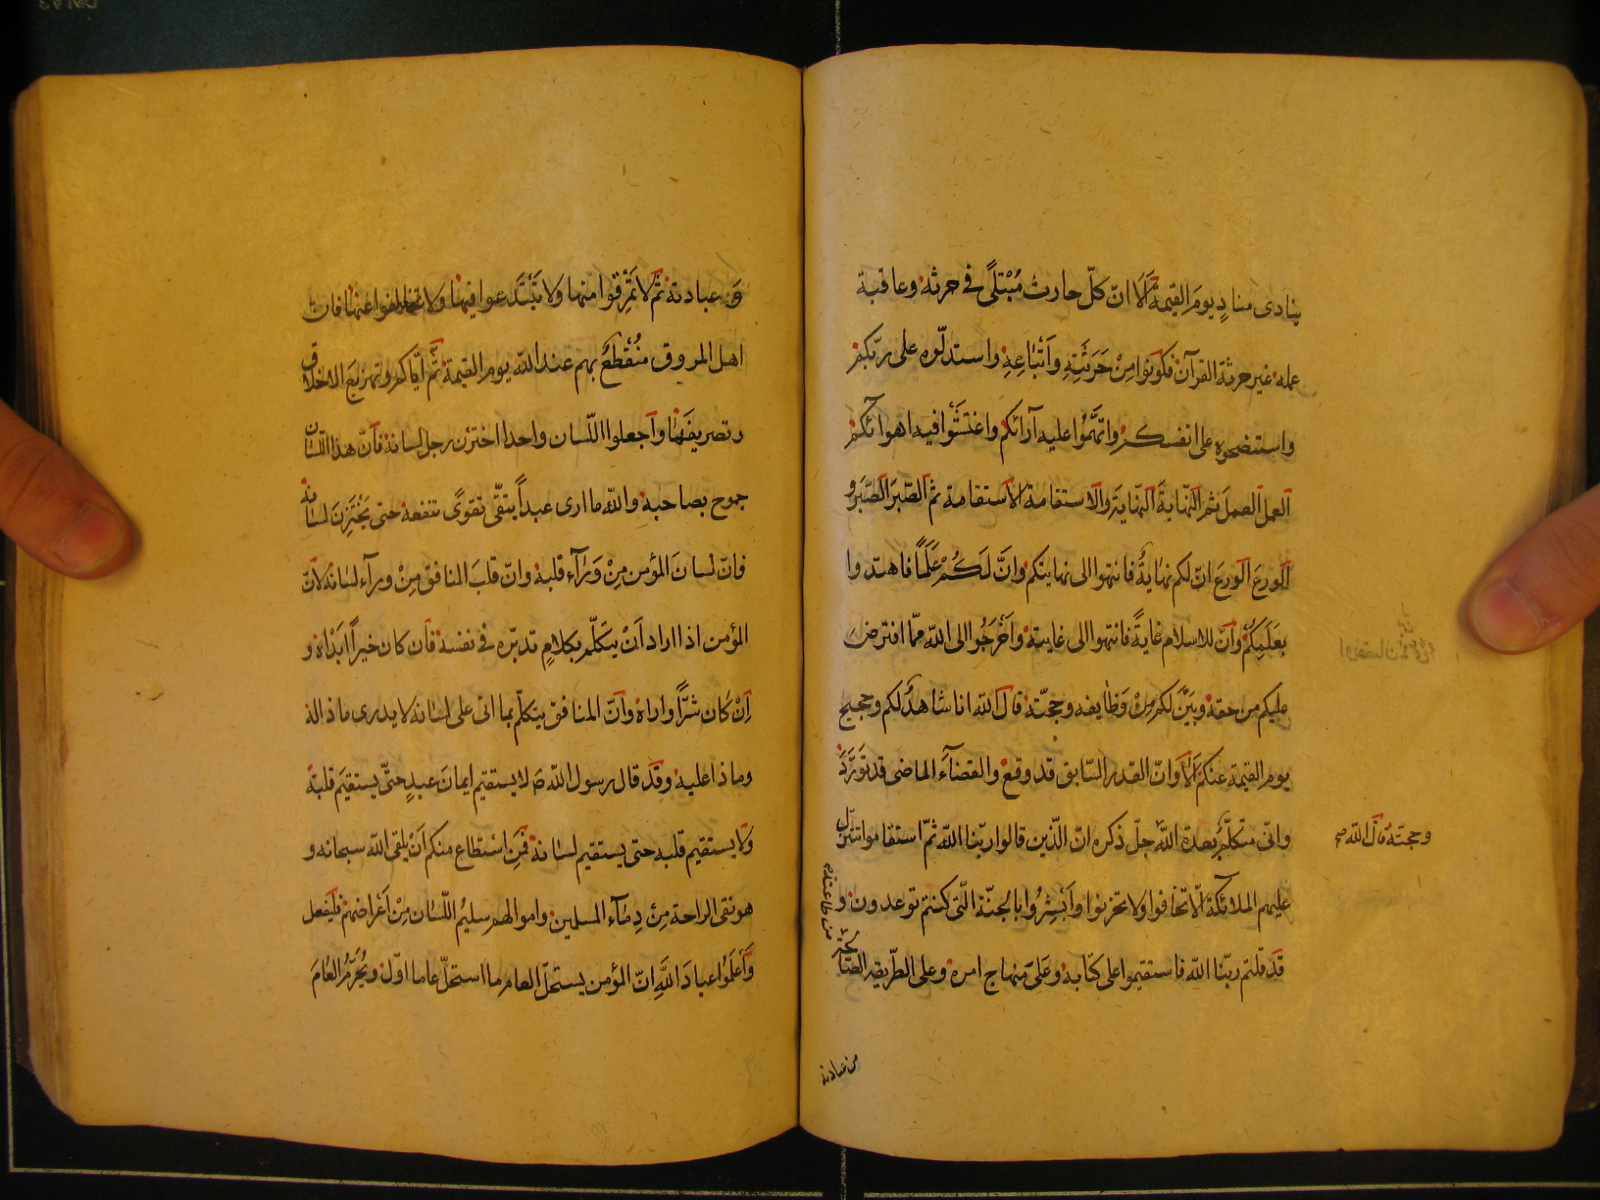 ينادى مناد يوم القيمة اَلَا انّ كلّ حارث مُبْتَلًى فى حرثه وعاقبة
عمله غير حرثة القرآن فكونوا مِنْ حَرَثَتِهِ واَتْبَاعِهِ واستدلّوه على ربّكم
واستنصحوه على انفسكم واتّهموا عليه آرائكم واغتشّوا فيه اهوائكم
العمل العمل ثم النّهاية النّهاية والاستقامة الاستقامة ثم الصّبر الصّبر و
الورع الورع انّ لكم نهايةً فانتهوا الى نهايتكم وانّ لَكُمْ عَلَمًا فاهتدوا
بعَلَمِكُمْ وانّ للاسلام غايةً فانتهوا الى غايته واخرجوا الى الله ممّا افترض
عليكم من حقه وبيّن لكم من وظايفه وحجته قال الله انا شاهد لكم وحجيج
يوم القيمة عنكم اَلَا وانّ القدر السّابق قد وقع والقضاء الماضى قد تورّد
وانّى متكلّم بعدة الله جلّ ذكره انّ الّذين قالوا ربّنا الله ثمّ استقاموا تتنزّل
عليهم الملائكة الّا تخافوا ولا تحزنوا وابشروا بالجنّة الّتى كنتم توعدون و
قد قلتم ربّنا الله فاستقيموا على كتابه وعلى منهاج امره وعلى الطّريقه الصّالحة
وحجته قال الله صح
من طاعته
من عبادته
من عبادته ثم لا تمرقوا منها ولا تبتدعوا فيها ولا تخالفوا عنها فانّ
اهل المروق منقطع بهم عند الله يوم القيمة ثمّ ايّاكم وتهزيع الاخلاق
وتصريفها واجعلوا اللّسان واحدا اختزن رجل لسانه فانّ هذا اللّسان
جموح بصاحبه والله ما ارى عبداً يتّقى تقوًى تنفعه حتى يَخْتَزِنَ لسانه
فانّ لسان المؤمن مِنْ وَرَآء قلبه وانّ قلبَ المنافق مِنْ ورآء لسانه لانّ
المؤمن اذا اراد اَنْ يتكلّم بكلامٍ تدبّره فى نفسه فان كان خيراً ابداه و
اِنْ كان شرّاً واراه وانّ المنافق يتكلّم بما اتى على لسانه لا يدرى ماذا له
وماذا عليه وقد قال رسول الله ص لا يستقيم ايمان عبدٍ حتّى يستقيمَ قلبه
ولا يستقيم قلبه حتى يستقيم لسانه فمن استطاع منكم اَنْ يلقى الله سبحانه و
هو نقى الراحة مِنْ دِمآء المسلمين واموالهم سليم اللّسان مِنْ اَعراضهم فليفعل
واعلموا عبادَ اللهِ انّ المؤمن يستحلّ العام ما استحلّ عاما اوّل ويُحَرِّمُ العَامَ